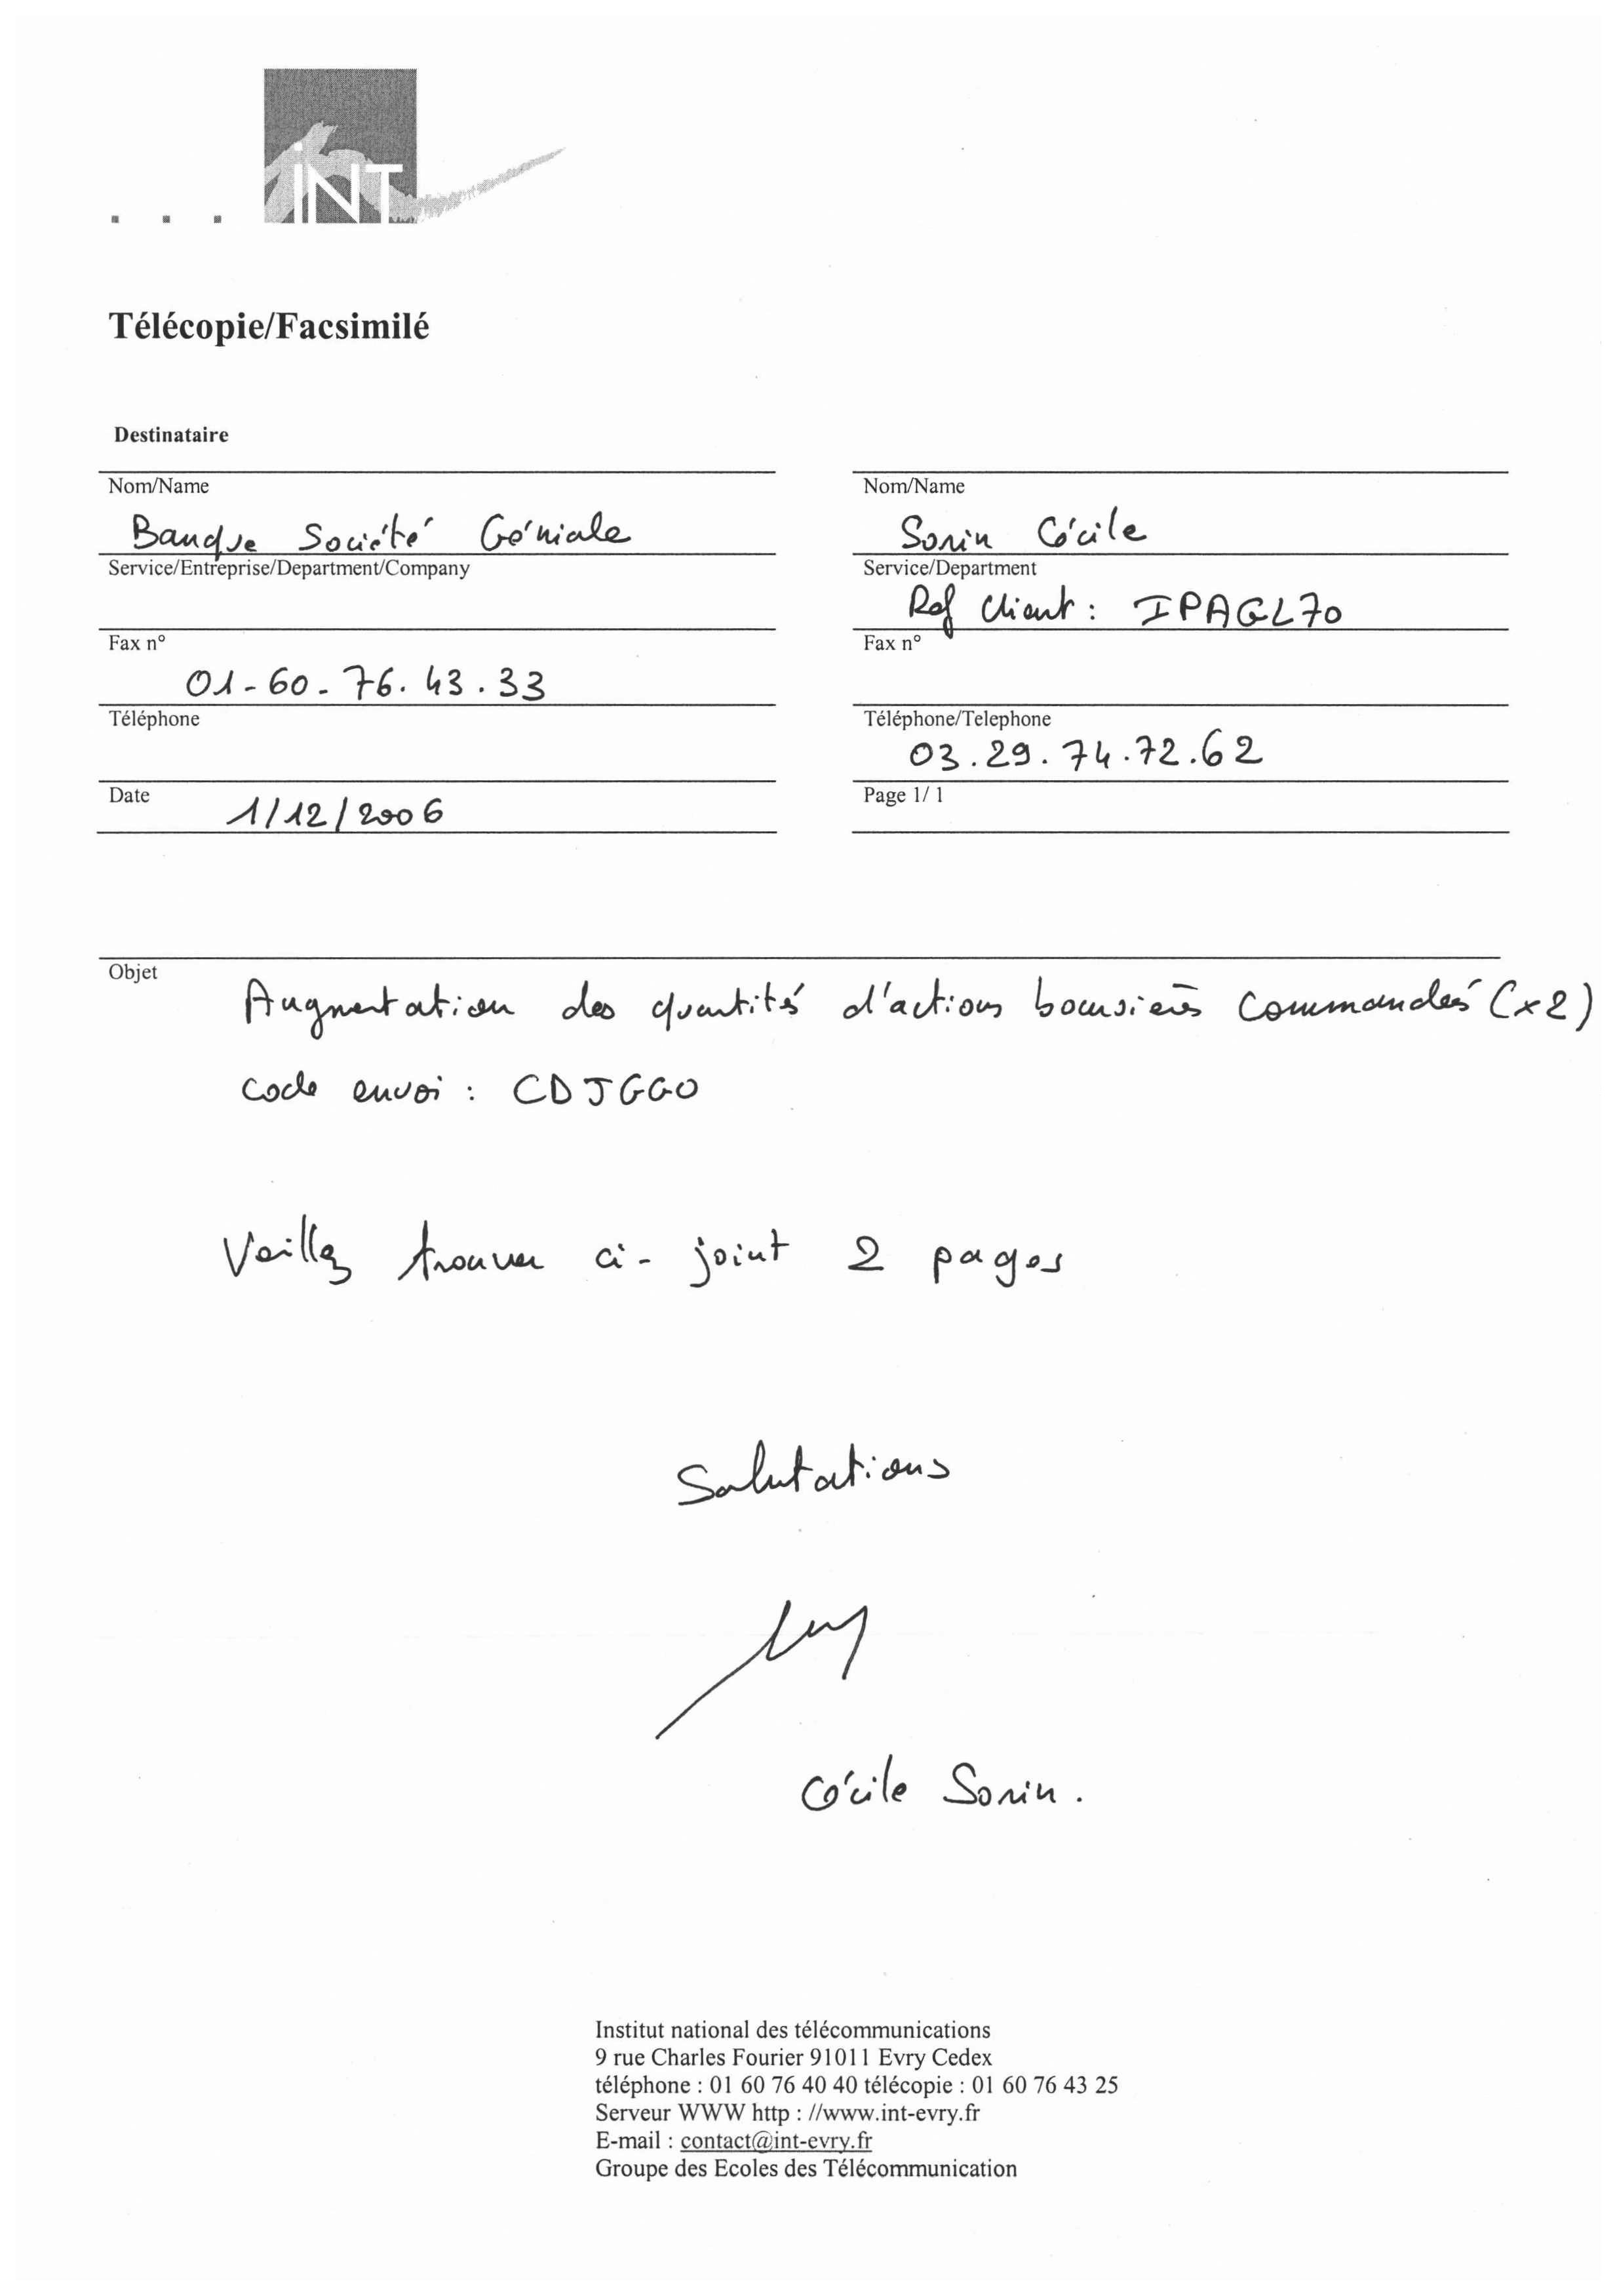 iNT
Télécopie/Facsimilé
Destinataire
Nom/Name
Banque Société Géniale
Service/Entreprise/Department/Company
Fax n°
01-60-76.43.33
Téléphone
Date 1/12/2006
Nom/Name
Sorin Cécile
Service/Department
Ref client : IPAGL70
Fax n°
Téléphone/Telephone
03.29.74.72.62
Page 1/ 1
Objet
Augmentation des quantités d'actions boursières commandées (x2)
code envoi : CDJGGO
Veillez trouver ci-joint 2 pages
Salutations
Cécile Sorin.
Institut national des télécommunications
9 rue Charles Fourier 91011 Evry Cedex
téléphone : 01 60 76 40 40 télécopie : 01 60 76 43 25
Serveur WWW http : //www.int-evry.fr
E-mail : contact@int-evry.fr
Groupe des Ecoles des Télécommunication